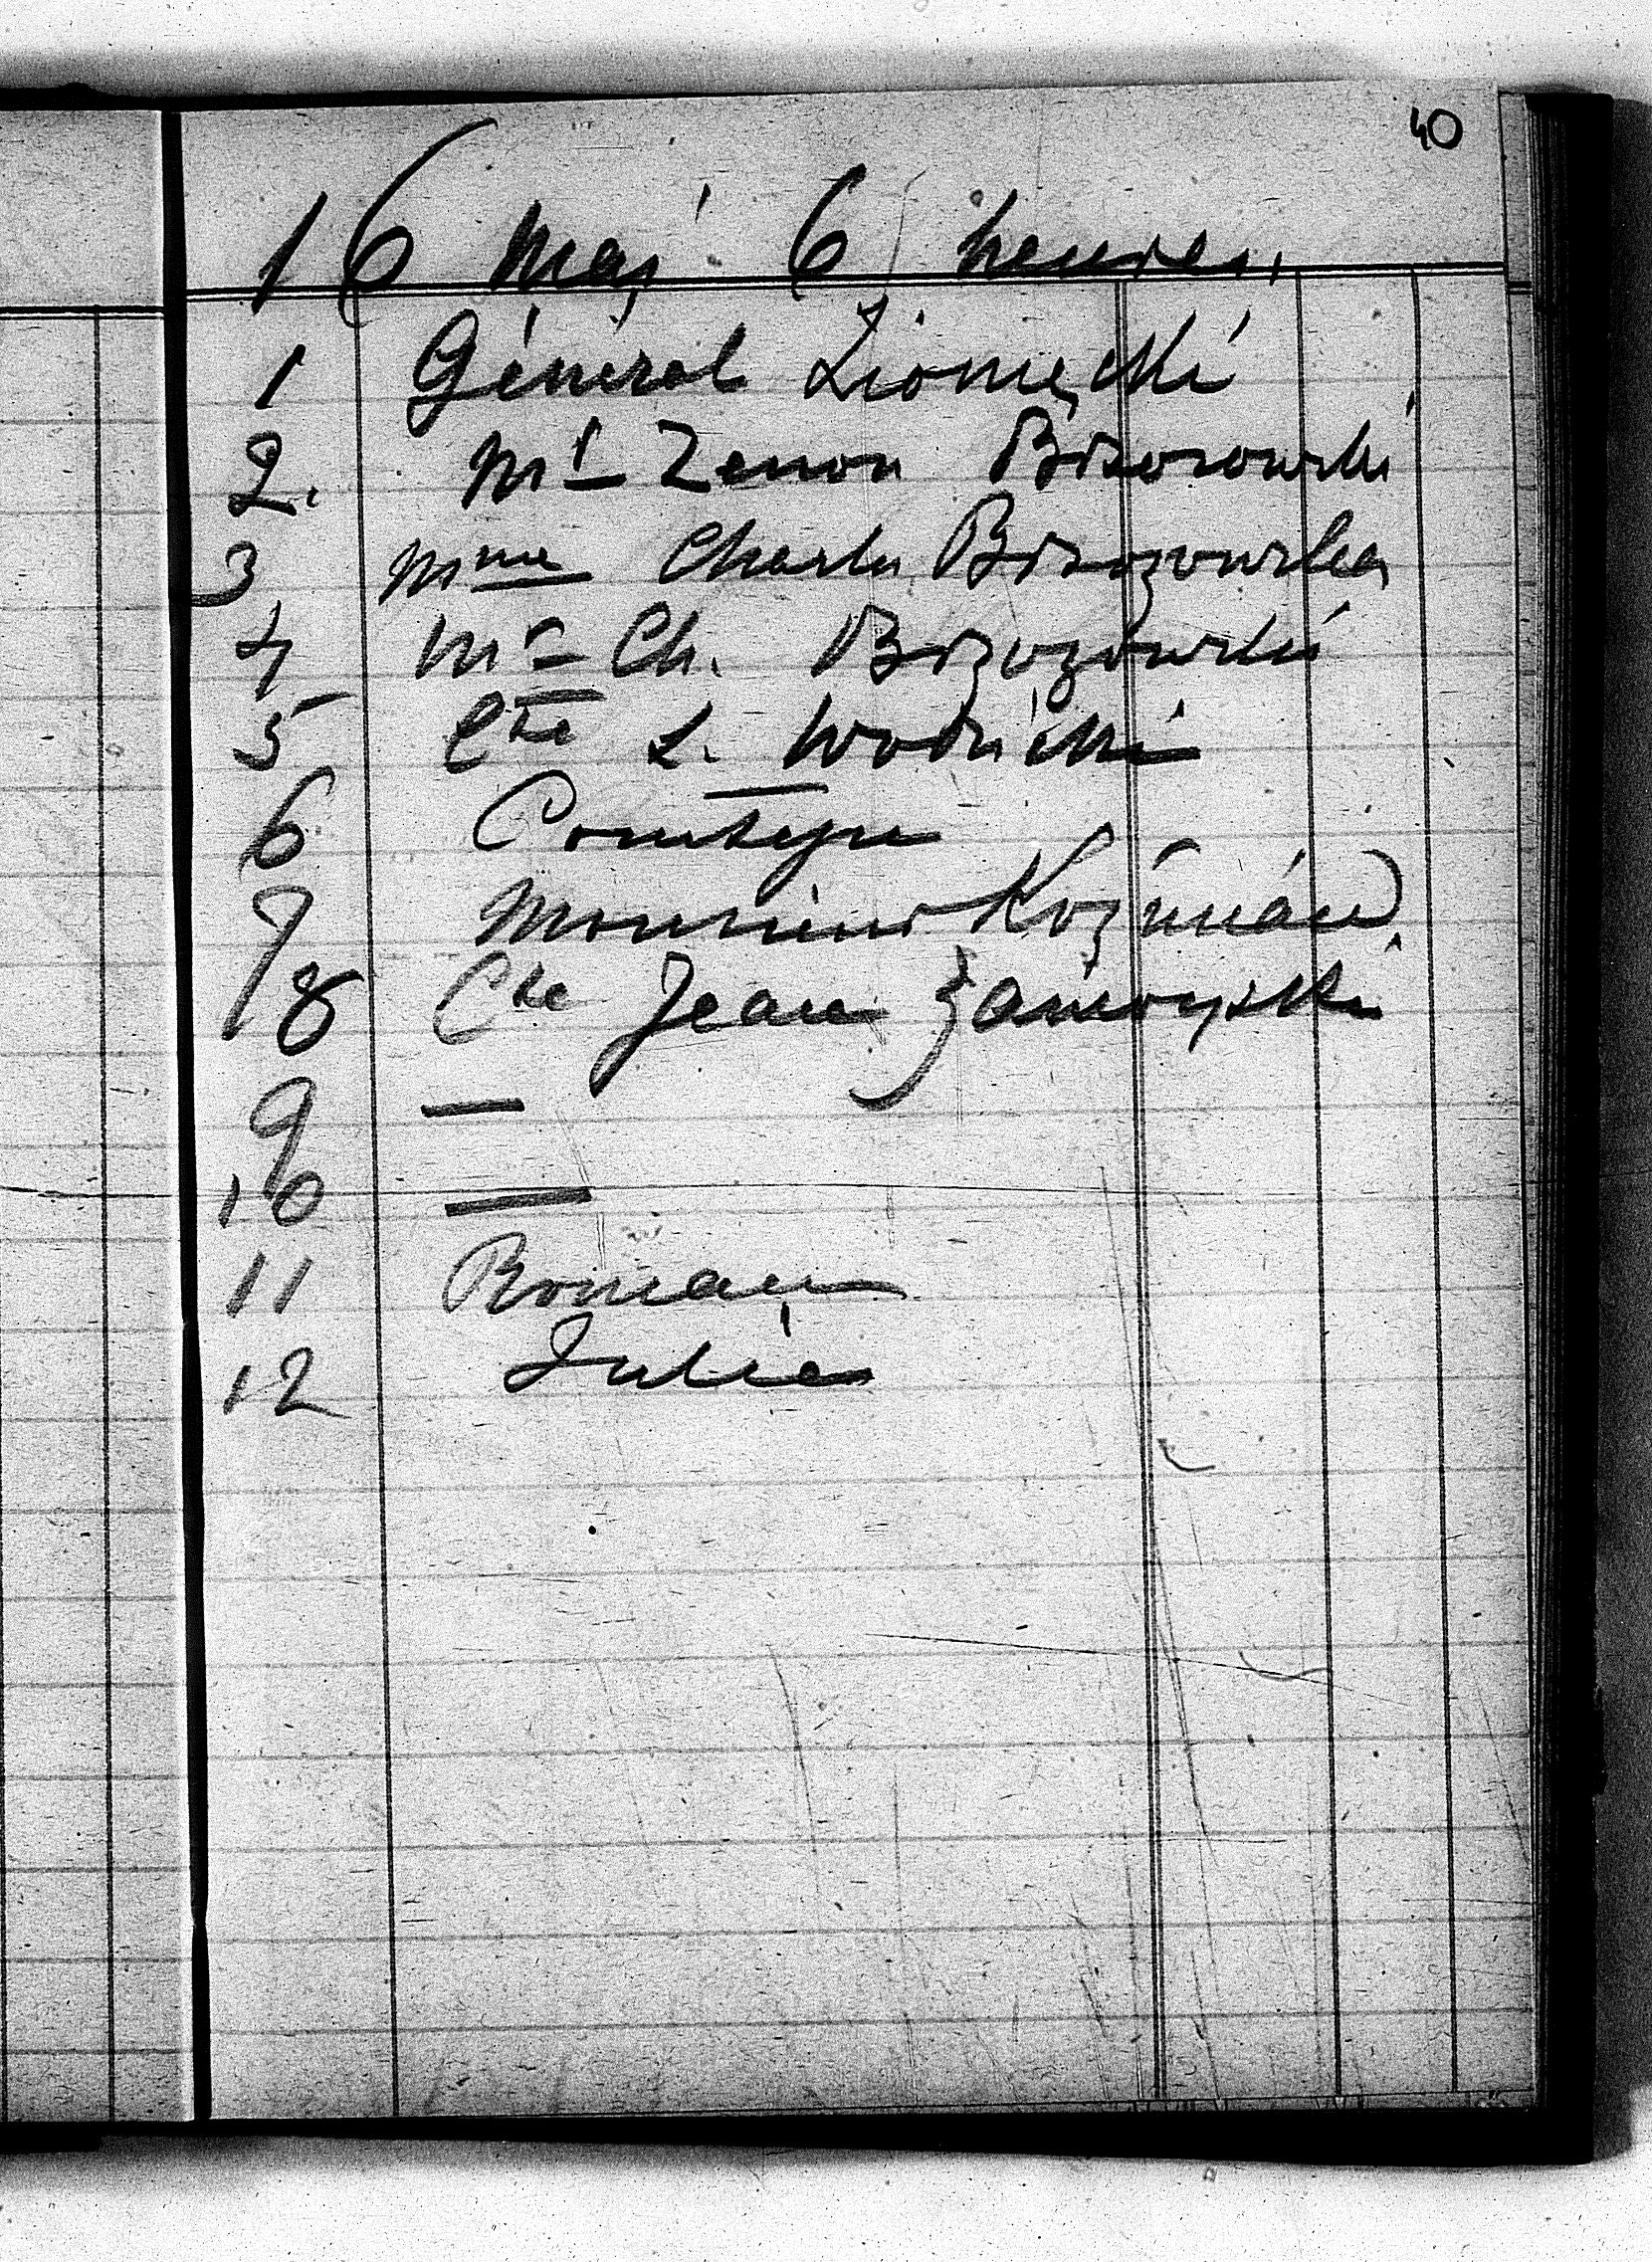 40
16 Maj 6 heures,
1 Géneral Zioniecki
2. Mr Zenon Brzozowski
3 Mme Charles Brzozowska
4 Mr Ch. Brzozowski
5 Cte L. Wodzicki
6 Comtesse
7 Monsieur Koźmian
8 Cte Jean Zamoyski
9 —
10 —
11 Roman
12 Julie